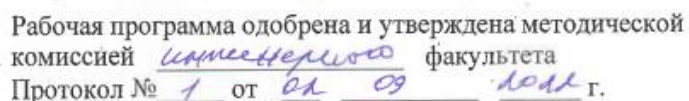 Рабочая программа одобрена и утверждена методической
комиссией инженерного факультета
Протокол № 1 от 02 09 2022 г.